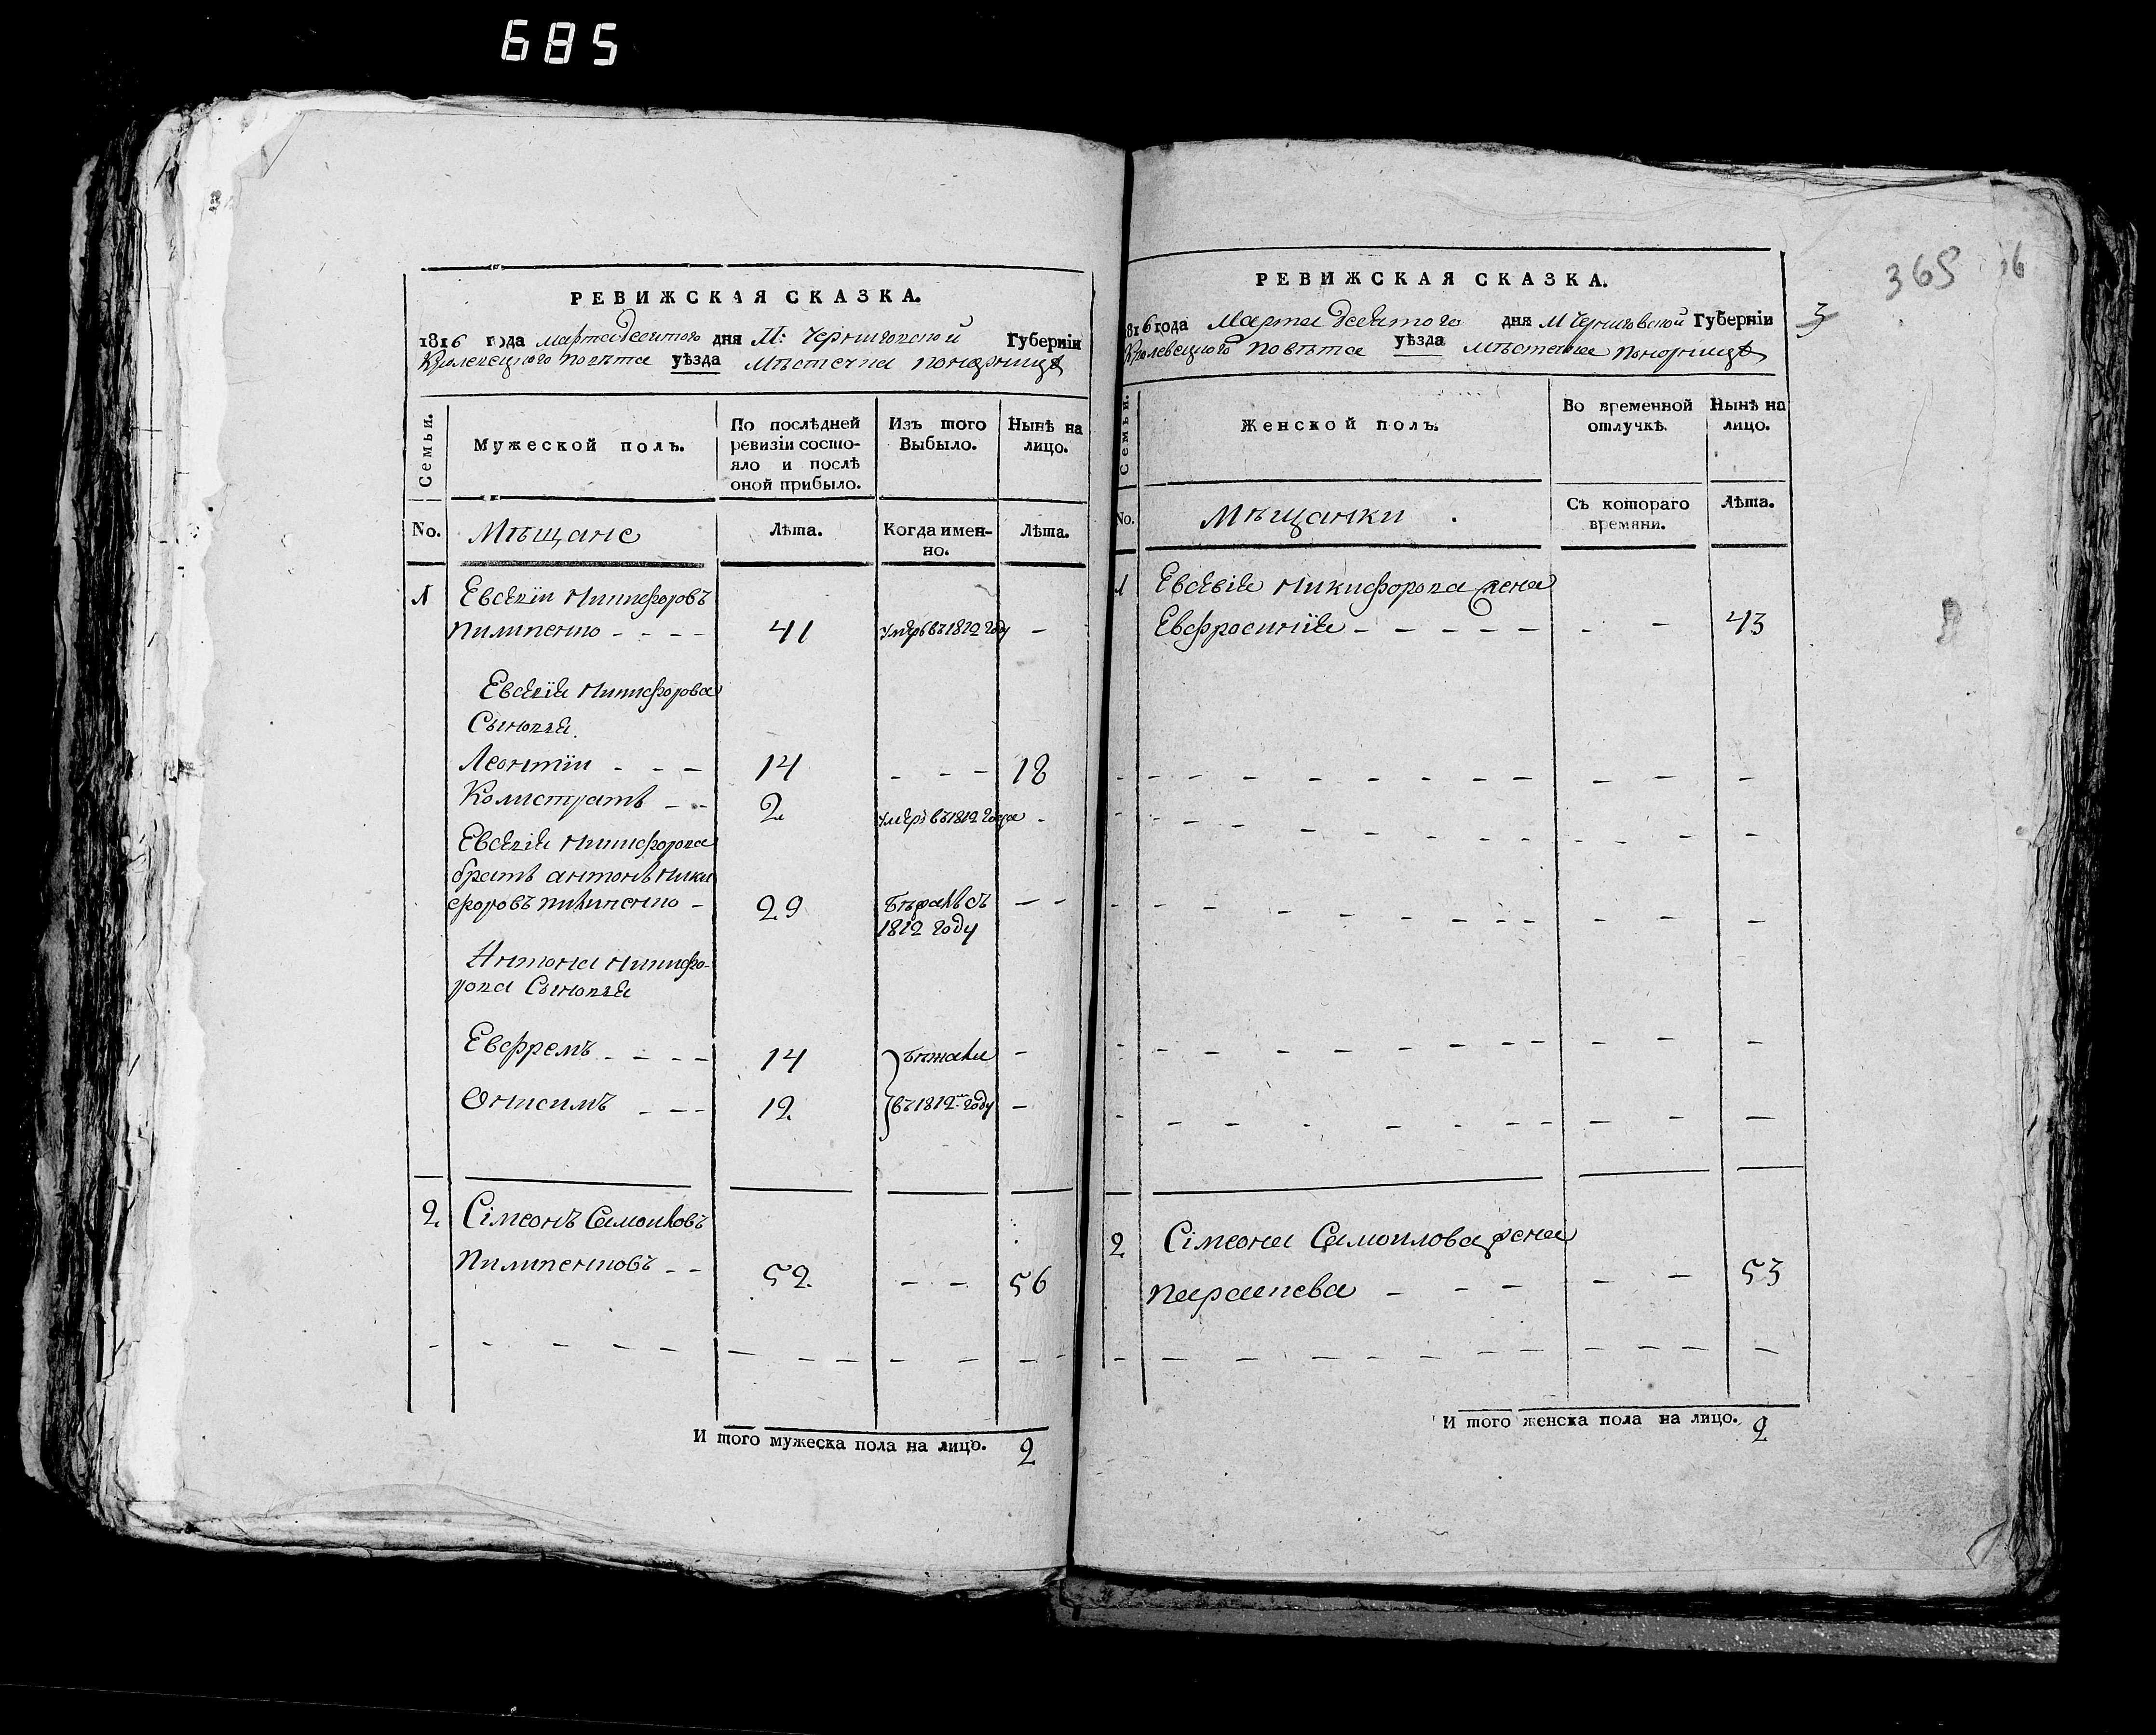 685
РЕВИЖСКАЯ СКАЗКА.
1816 года марта десятого дня М: Черниговской Губерніи
Кролевецкого повѣта уѣзда мѣстечка понорницѣ
Семьи.
Мужеской полъ.
По послѣдней ревизіи состо-
яло и послѣ
оной прибыло.
Изъ того
Выбыло.
Нынѣ на
лицо.
No.
Мѣщане
Лѣта.
Когда имен-
но.
Лѣта.
1 Евсевіи Никифоровъ
пилипенко - - - - 41 умеръ въ 1812 году -
Евсевія Никифорова
Сыновя.
Леонтіи - - - 14 - - - 18
Калистратъ - - 2 умеръ въ 1812 года -
Евсевія Никифорова
братъ антонъ Ники
форовъ пилипенко - 29 Бѣжалъ съ - -
1812 году
Антона Никифо-
рова Сыновя
Евфремъ - - - - 14 Бѣжали -
Онисимъ - - - 12 въ 1812м году -
2 Сімеонъ Самоиловъ
Пилипенковъ - - 52 - - 56
И того мужеска пола на лицо. 2
365
16
3
РЕВИЖСКАЯ СКАЗКА.
1816 года Марта десятого дня М Черниговской Губерніи
Кролевецкого повѣта уѣзда мѣстечка понорницѣ
Семьи.
Женской полъ.
Во временной
отлучкѣ.
Нынѣ на
лицо.
No.
Мѣщанки
Съ котораго
времяни.
Лѣта.
1 Евсевія Никифорова жена
Евфросинія - - - - - - - 43
2 Сімеона Самоилова жена
параскева - - - - - 53
И того женска пола на лицо. 2